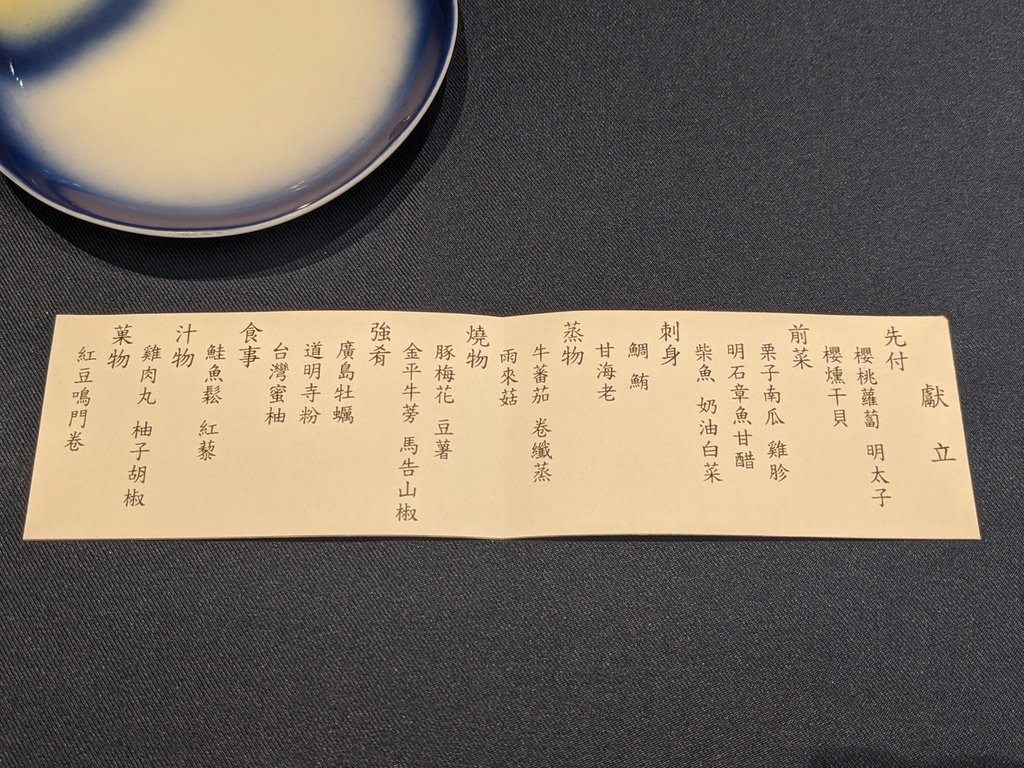 獻立
先付
櫻桃蘿蔔 明太子
櫻燻干貝
前菜
栗子南瓜 雞胗
明石章魚甘醋
柴魚 奶油白菜
刺身
鯛 鮪
甘海老
蒸物
牛蕃茄 卷纖蒸
雨來菇
燒物
豚梅花 豆薯
金平牛蒡 馬告山椒
強肴
廣島牡蠣
道明寺粉
台灣蜜柚
食事
鮭魚鬆 紅藜
汁物
雞肉丸 柚子胡椒
菓物
紅豆鳴門卷